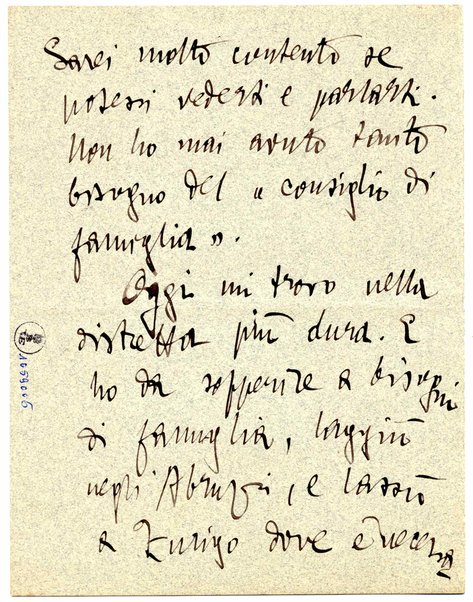 Sarei molto contento se
potessi vederti e parlarti.
Non ho mai avuto tanto
bisogno del « consiglio di
famiglia ».
Oggi mi trovo nella
distretta più dura. E
ho da sopperire a bisogni
di famiglia, laggiù
negli Abruzzi, e lassù
a Zurigo dove è necessa